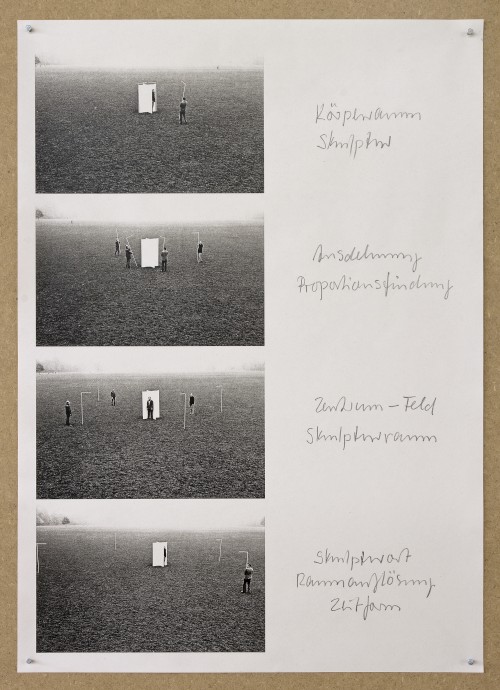 Körperraum
Skulptur
Ausdehnung
Proportionsfindung
Zentrum – Feld
Skulpturraum
Skulpturort
Raumauflösung
Zeitform